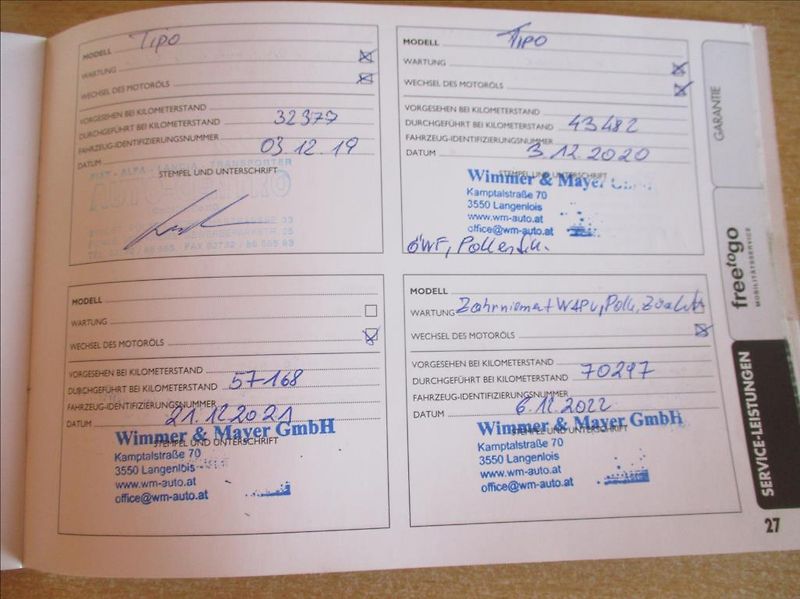 MODELL Tipo
WARTUNG
WECHSEL DES MOTORÖLS
VORGESEHEN BEI KILOMETERSTAND
DURCHGEFÜHRT BEI KILOMETERSTAND 32379
FAHRZEUG-IDENTIFIZIERUNGSNUMMER
DATUM 03.12.19
STEMPEL UND UNTERSCHRIFT
FIAT - ALFA - LANCIA - TRANSPORTER
MODELL Tipo
WARTUNG
WECHSEL DES MOTORÖLS
VORGESEHEN BEI KILOMETERSTAND
DURCHGEFÜHRT BEI KILOMETERSTAND 43482
FAHRZEUG-IDENTIFIZIERUNGSNUMMER
DATUM 3.12.2020
STEMPEL UND UNTERSCHRIFT
Wimmer & Mayer GmbH
Kamptalstraße 70
3550 Langenlois
www.wm-auto.at
office@wm-auto.at
MODELL
WARTUNG
WECHSEL DES MOTORÖLS
VORGESEHEN BEI KILOMETERSTAND
DURCHGEFÜHRT BEI KILOMETERSTAND 57168
FAHRZEUG-IDENTIFIZIERUNGSNUMMER
DATUM 21.12.2021
STEMPEL UND UNTERSCHRIFT
Wimmer & Mayer GmbH
Kamptalstraße 70
3550 Langenlois
www.wm-auto.at
office@wm-auto.at
MODELL
WARTUNG Zahnriemen+WAPU, Poll,
WECHSEL DES MOTORÖLS
VORGESEHEN BEI KILOMETERSTAND
DURCHGEFÜHRT BEI KILOMETERSTAND 70297
FAHRZEUG-IDENTIFIZIERUNGSNUMMER
DATUM 6.12.2022
STEMPEL UND UNTERSCHRIFT
Wimmer & Mayer GmbH
Kamptalstraße 70
3550 Langenlois
www.wm-auto.at
office@wm-auto.at
GARANTIE
freetogo
MOBILITÄTSSERVICE
SERVICE-LEISTUNGEN
27